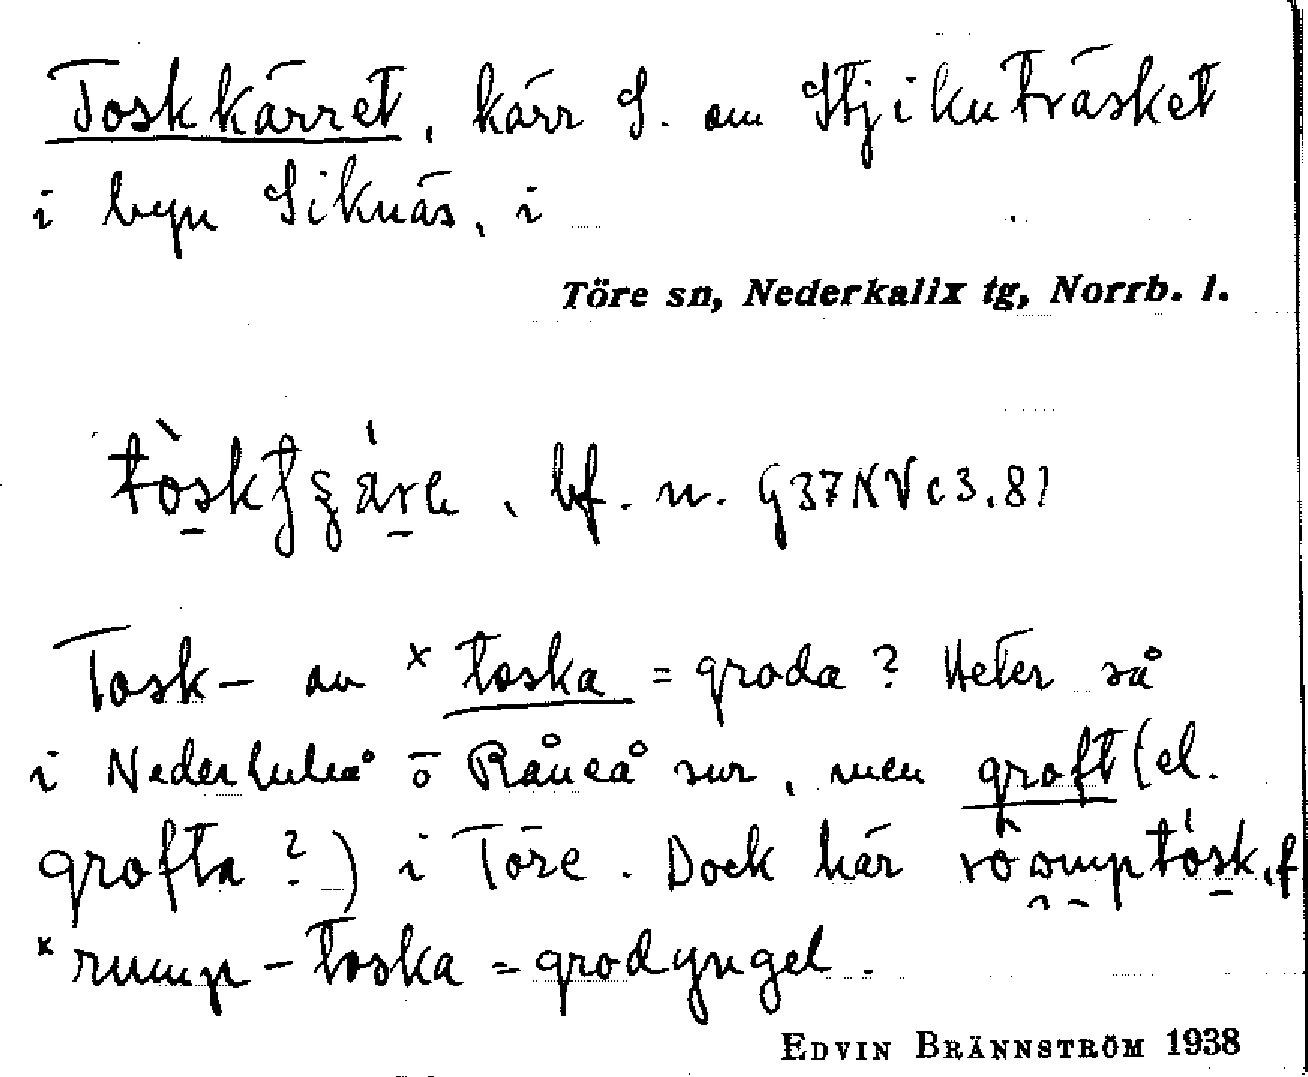 Toskkärret, kärr S. om Stjikuträsket
i byn Siknäs, i
Töre sn, Nederkalix tg, Norrb. l.
bf. n. G37NVc3.81
Tosk- av × toska = groda? Heter så
i Nederluleå o Råneå snr, men groft (el.
grofta?) i Töre. Dock här
× rump-toska = grodyngel.
EDVIN BRÄNNSTRÖM 1938